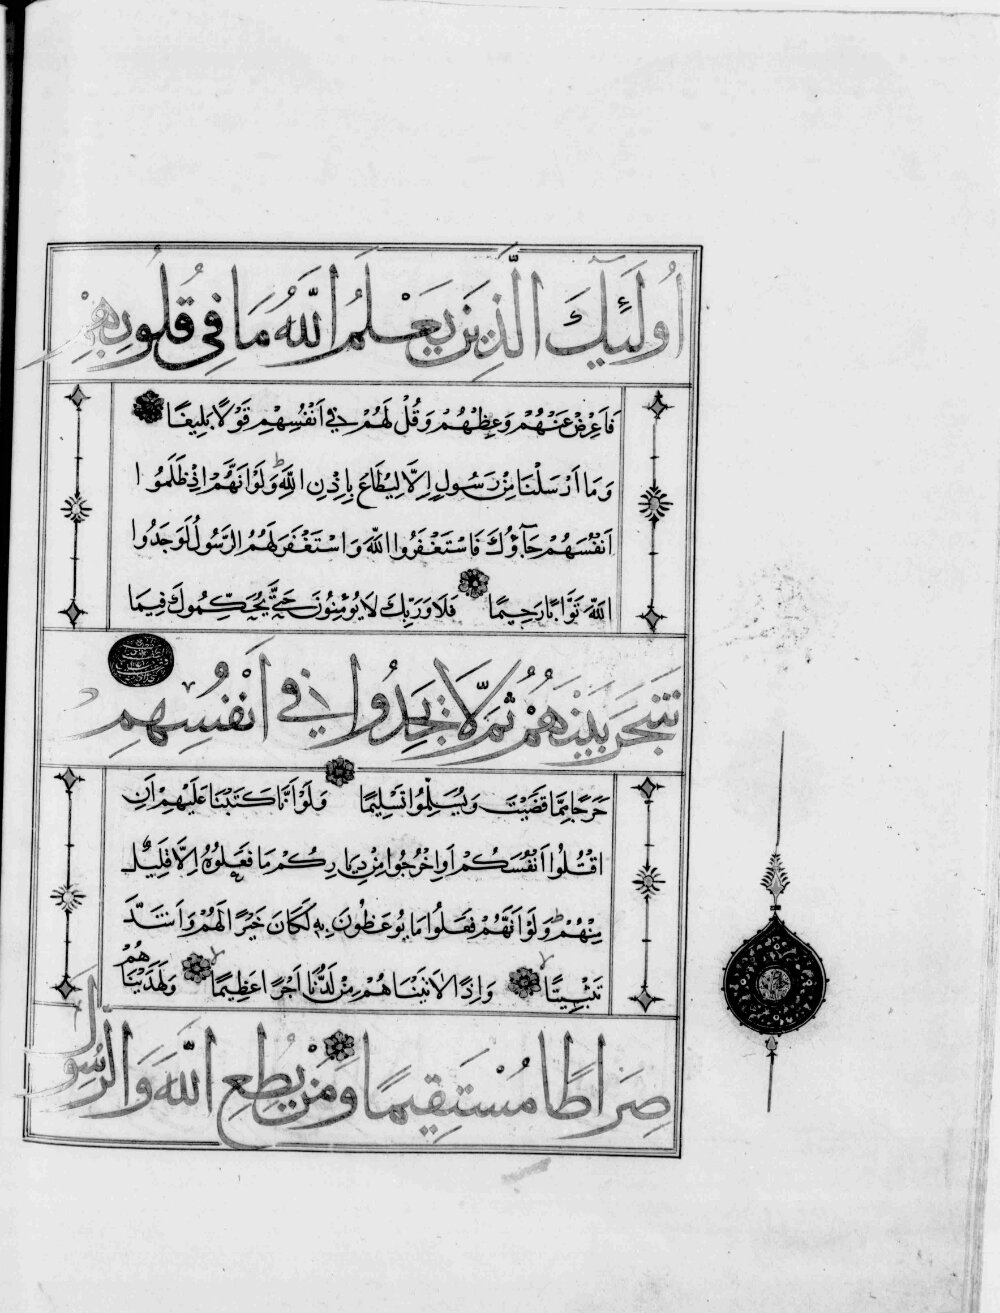 اُولَئِكَ الَّذِينَ يَعْلَمُ اللَّهُ مَا فِي قُلُوبِهِمْ
فَاَعْرِضْ عَنْهُمْ وَعِظْهُمْ وَقُلْ لَهُمْ فِي اَنْفُسِهِمْ قَوْلًا بَلِيغًا
وَمَا اَرْسَلْنَا مِنْ رَسُولٍ اِلَّا لِيُطَاعَ بِاِذْنِ اللَّهِ وَلَوْ اَنَّهُمْ اِذْ ظَلَمُوا
اَنْفُسَهُمْ جَآؤُكَ فَاسْتَغْفَرُوا اللَّهَ وَاسْتَغْفَرَ لَهُمُ الرَّسُولُ لَوَجَدُوا
اللَّهَ تَوَّابًا رَحِيمًا فَلَا وَرَبِّكَ لَا يُؤْمِنُونَ حَتَّى يُحَكِّمُوكَ فِيمَا
شَجَرَ بَيْنَهُمْ ثُمَّ لَا يَجِدُوا فِي اَنْفُسِهِمْ
حَرَجًا مِمَّا قَضَيْتَ وَيُسَلِّمُوا تَسْلِيمًا وَلَوْ اَنَّا كَتَبْنَا عَلَيْهِمْ اَنِ
اقْتُلُوا اَنْفُسَكُمْ اَوِ اخْرُجُوا مِنْ دِيَارِكُمْ مَا فَعَلُوهُ اِلَّا قَلِيلٌ
مِنْهُمْ وَلَوْ اَنَّهُمْ فَعَلُوا مَا يُوعَظُونَ بِهِ لَكَانَ خَيْرًا لَهُمْ وَاَشَدَّ
تَثْبِيتًا وَاِذًا لَاٰتَيْنَاهُمْ مِنْ لَدُنَّا اَجْرًا عَظِيمًا وَلَهَدَيْنَاهُمْ
صِرَاطًا مُسْتَقِيمًا وَمَنْ يُطِعِ اللَّهَ وَالرَّسُولَ